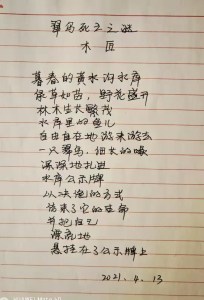 翠鸟死亡之谜
木匠
暮春的黄水沟水库
绿草如茵，野花盛开
林木生长繁茂
水库里的鱼儿
自由自在地游来游去
一只翠鸟，细长的喙
深深地扎进
水库公示牌
以决绝的方式
结束了它的生命
并把自己
漂亮地
悬挂在了公示牌上
2021. 4. 13